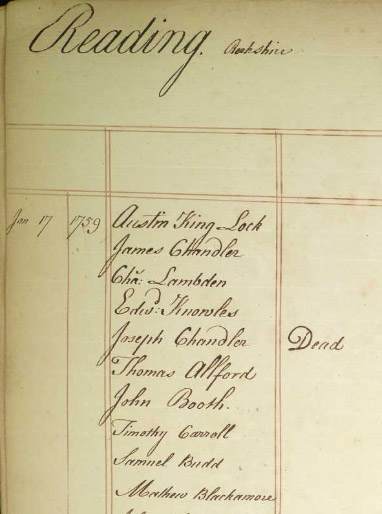 Reading. Berkshire
Jan 17 1759 Austin King Lock
James Chandler
Cha: Lambden
Edwd: Knowles
Joseph Chandler Dead
Thomas Allford
John Booth.
Timothy Carroll
Samuel Budd
Mathew Blackamore